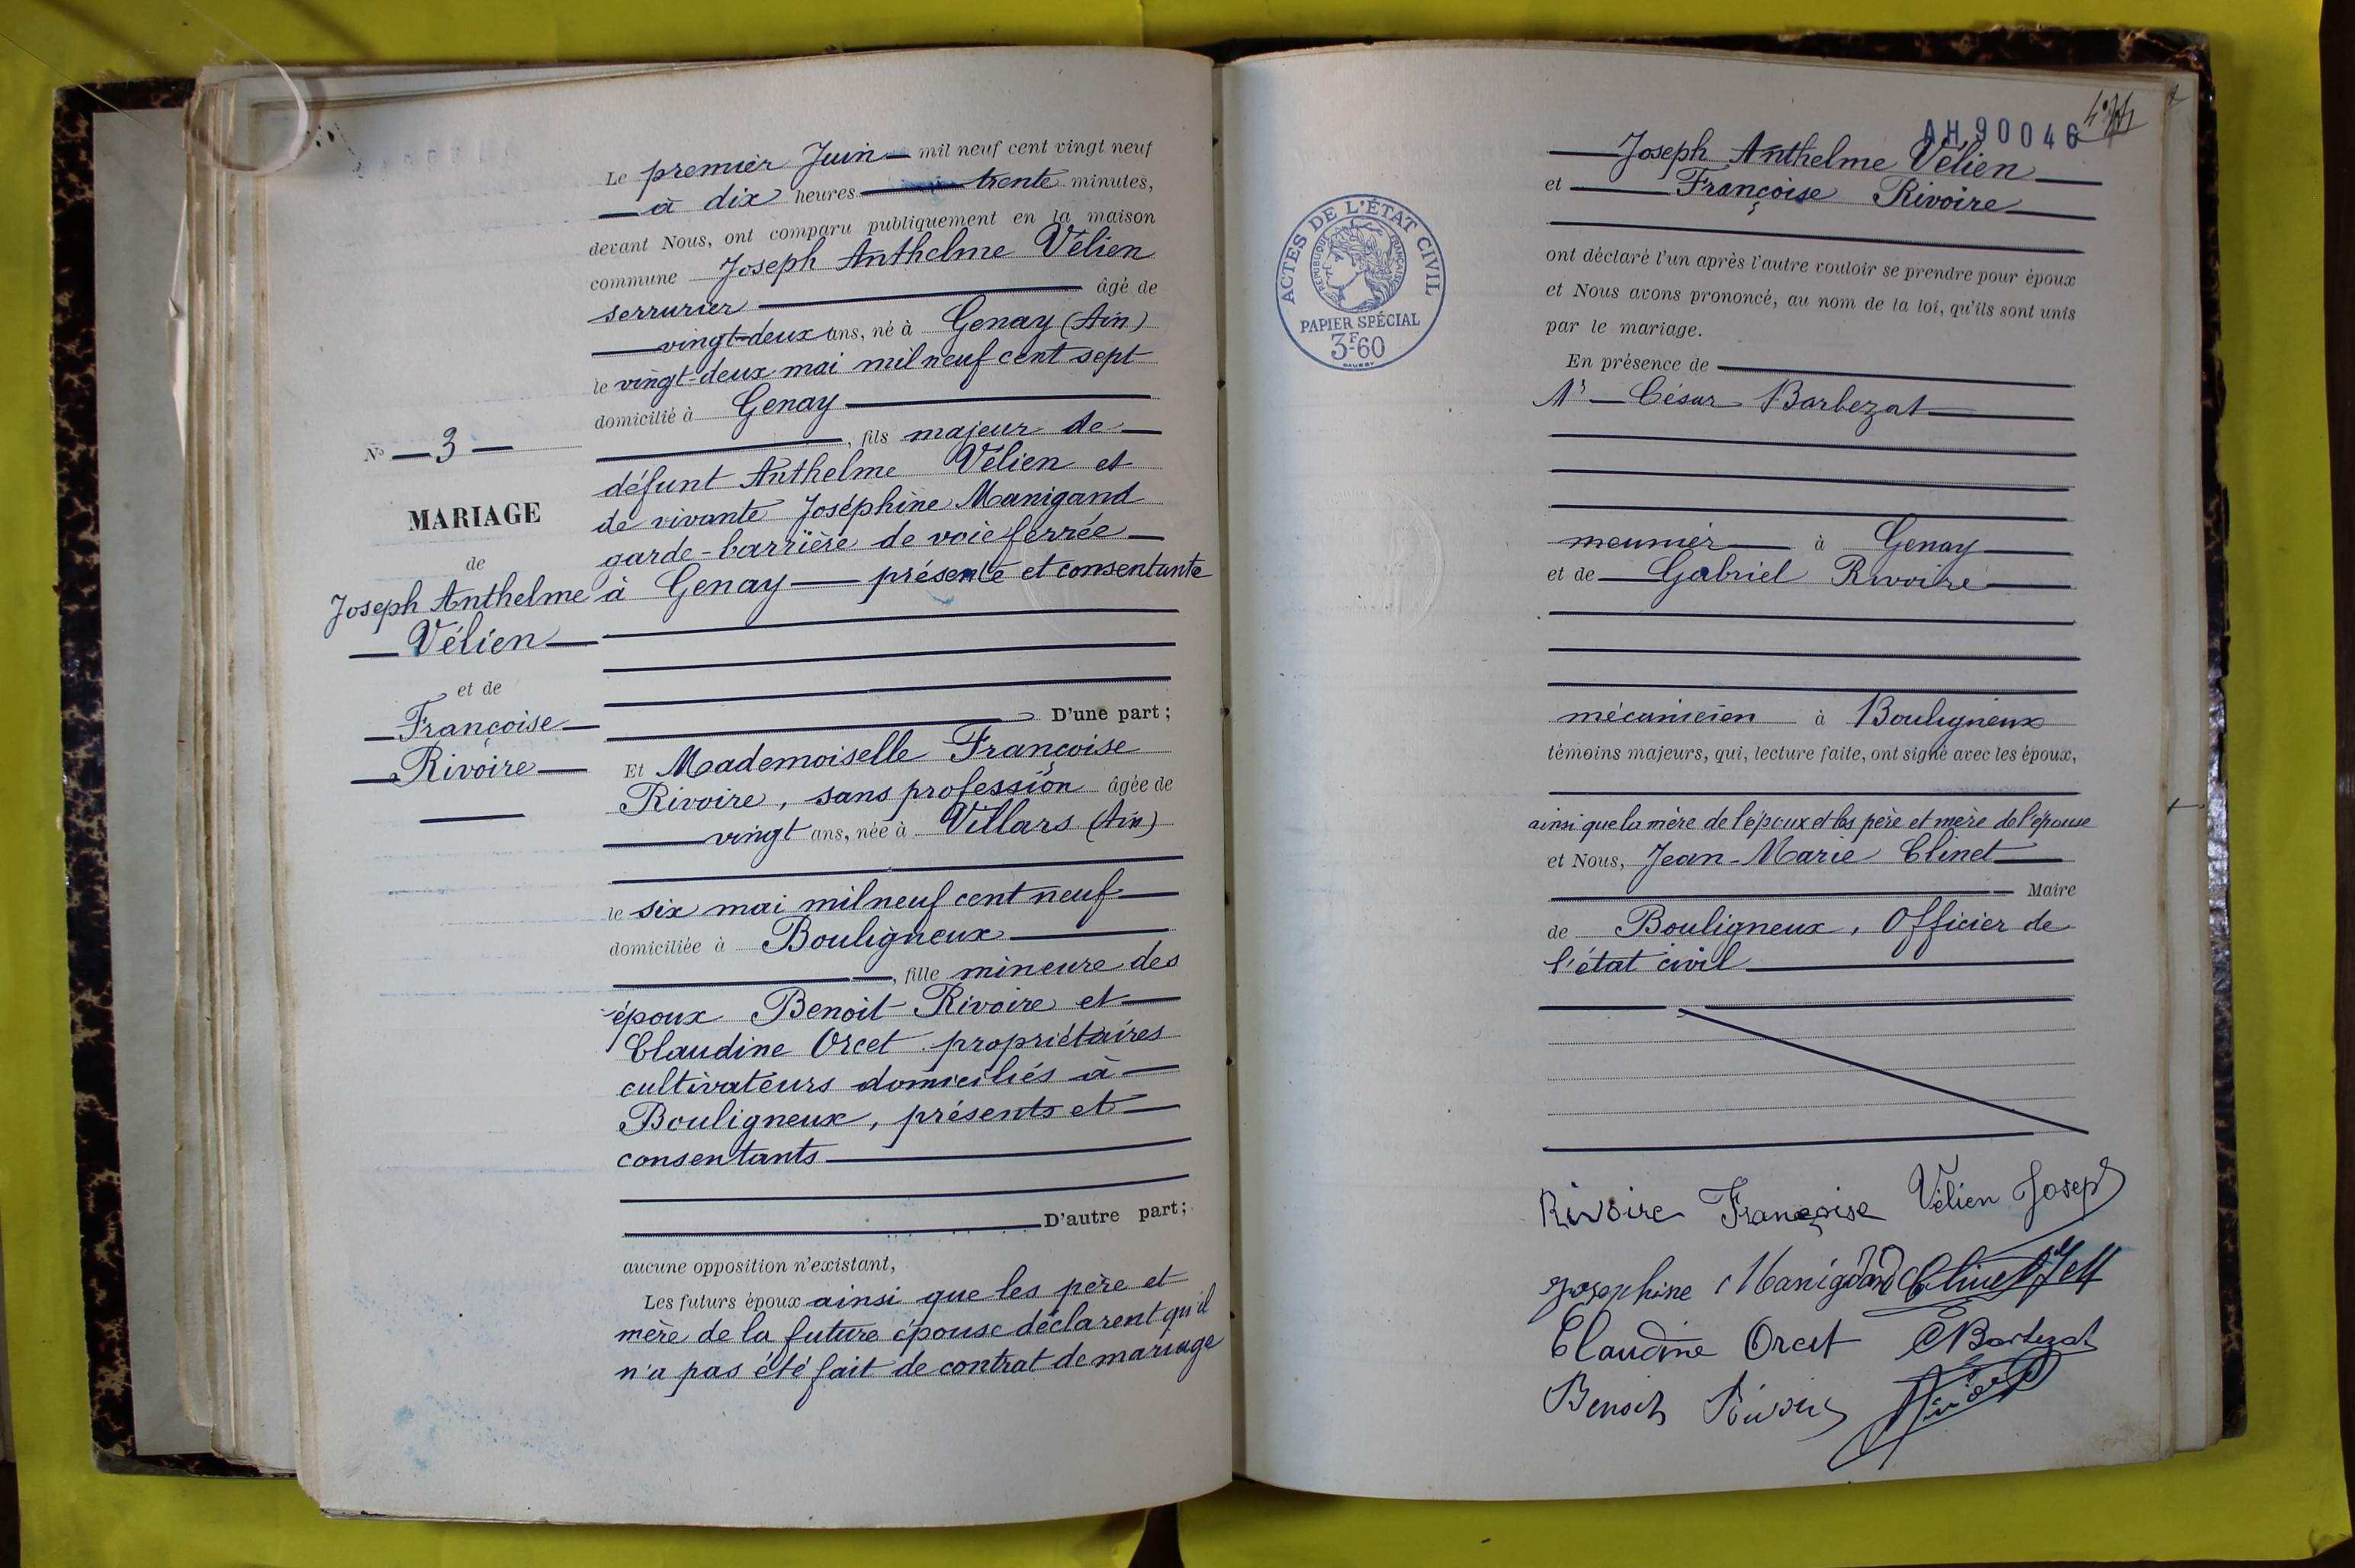 Le premier Juin mil neuf cent vingt neuf
à dix heures trente minutes,
devant Nous, ont comparu publiquement en la maison
commune Joseph Anthelme Vélien
serrurier âgé de
vingt-deux ans, né à Genay (Ain)
le vingt-deux mai mil neuf cent sept
domicilié à Genay
, fils majeur de
défunt Anthelme Vélien et
de vivante Joséphine Manigand
garde-barrière de voie ferrée
à Genay présente et consentante
D'une part;
Et Mademoiselle Françoise
Rivoire, sans profession âgée de
vingt ans, née à Villars (Ain)
le six mai mil neuf cent neuf
domiciliée à Bouligneux
, fille mineure des
époux Benoit Rivoire et
Claudine Orcet propriétaires
cultivateurs domiciliés à
Bouligneux, présents et
consentants
D'autre part;
aucune opposition n'existant,
Les futurs époux ainsi que les père et
mère de la future épouse déclarent qu'il
n'a pas été fait de contrat de mariage
N° 3
MARIAGE
de
Joseph Anthelme
Vélien
et de
Françoise
Rivoire
AH 90046
ACTES DE L'ÉTAT CIVIL
RÉPUBLIQUE FRANÇAISE
PAPIER SPÉCIAL
3F60
Joseph Anthelme Vélien
et Françoise Rivoire
ont déclaré l'un après l'autre vouloir se prendre pour époux
et Nous avons prononcé, au nom de la loi, qu'ils sont unis
par le mariage.
En présence de
Mr César Barbezat
meunier à Genay
et de Gabriel Rivoire
mécanicien à Bouligneux
témoins majeurs, qui, lecture faite, ont signé avec les époux,
ainsi que la mère de l'époux et les père et mère de l'épouse
et Nous, Jean-Marie Clinet
Maire
de Bouligneux, Officier de
l'état civil
Rivoire Françoise Vélien Joseph
Josephine Manigand Clinet
Claudine Orcet C Barbezat
Benoit Rivoire Rivoire